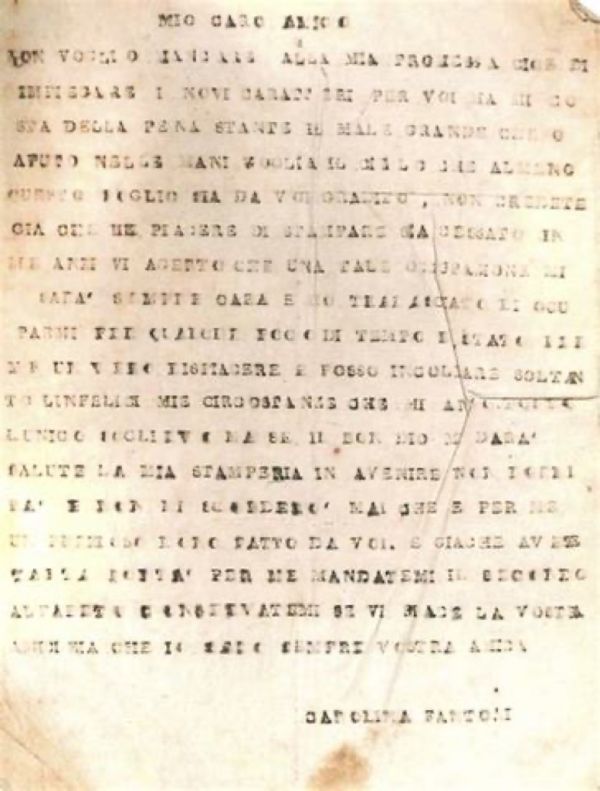 MIO CARO AMICO
NON VOGLIO MANCARE ALLA MIA PROMESSA CIOE DI
IMPIEGARE I NOVI CARATTERI PER VOI MA MI CO
STA DELLA PENA STANTE IL MALE GRANDE CHE O
AVUTO NELLE MANI VOGLIA IL CIELO CHE ALMENO
QUESTO FOGLIO SIA DA VOI GRADITO, NON CREDETE
GIA CHE IL PIACERE DI STAMPARE SIA CESSATO IN
ME ANZI VI ACERTO CHE UNA TALE OCUPAZIONE MI
SARA' SEMPRE CARA E HO TRALASCIATO DI OCU
PARMI PER QUALCHE POCO DI TEMPO E STATO PER
ME UN VERO DISPIACERE E POSSO INCOLPARE SOLTAN
TO LINFELICI MIE CIRCOSTANZE CHE MI AN
LUNICO SOLLIEVO MA SE IL BON DIO MI DARA'
SALUTE LA MIA STAMPERIA IN AVENIRE NON
RA' E NON MI SCORDERO' MAI CHE E PER ME
UN PREZIOSO DONO FATTO DA VOI. E GIACHE AVETE
TALLA BONTA' PER ME MANDATEMI IL SECONDO
ALFABETO CONSERVATEMI SE VI PIACE LA VOSTRA
AMICIZIA CHE IO SARO SEMPRE VOSTRA AMICA
CAROLINA FANTONI